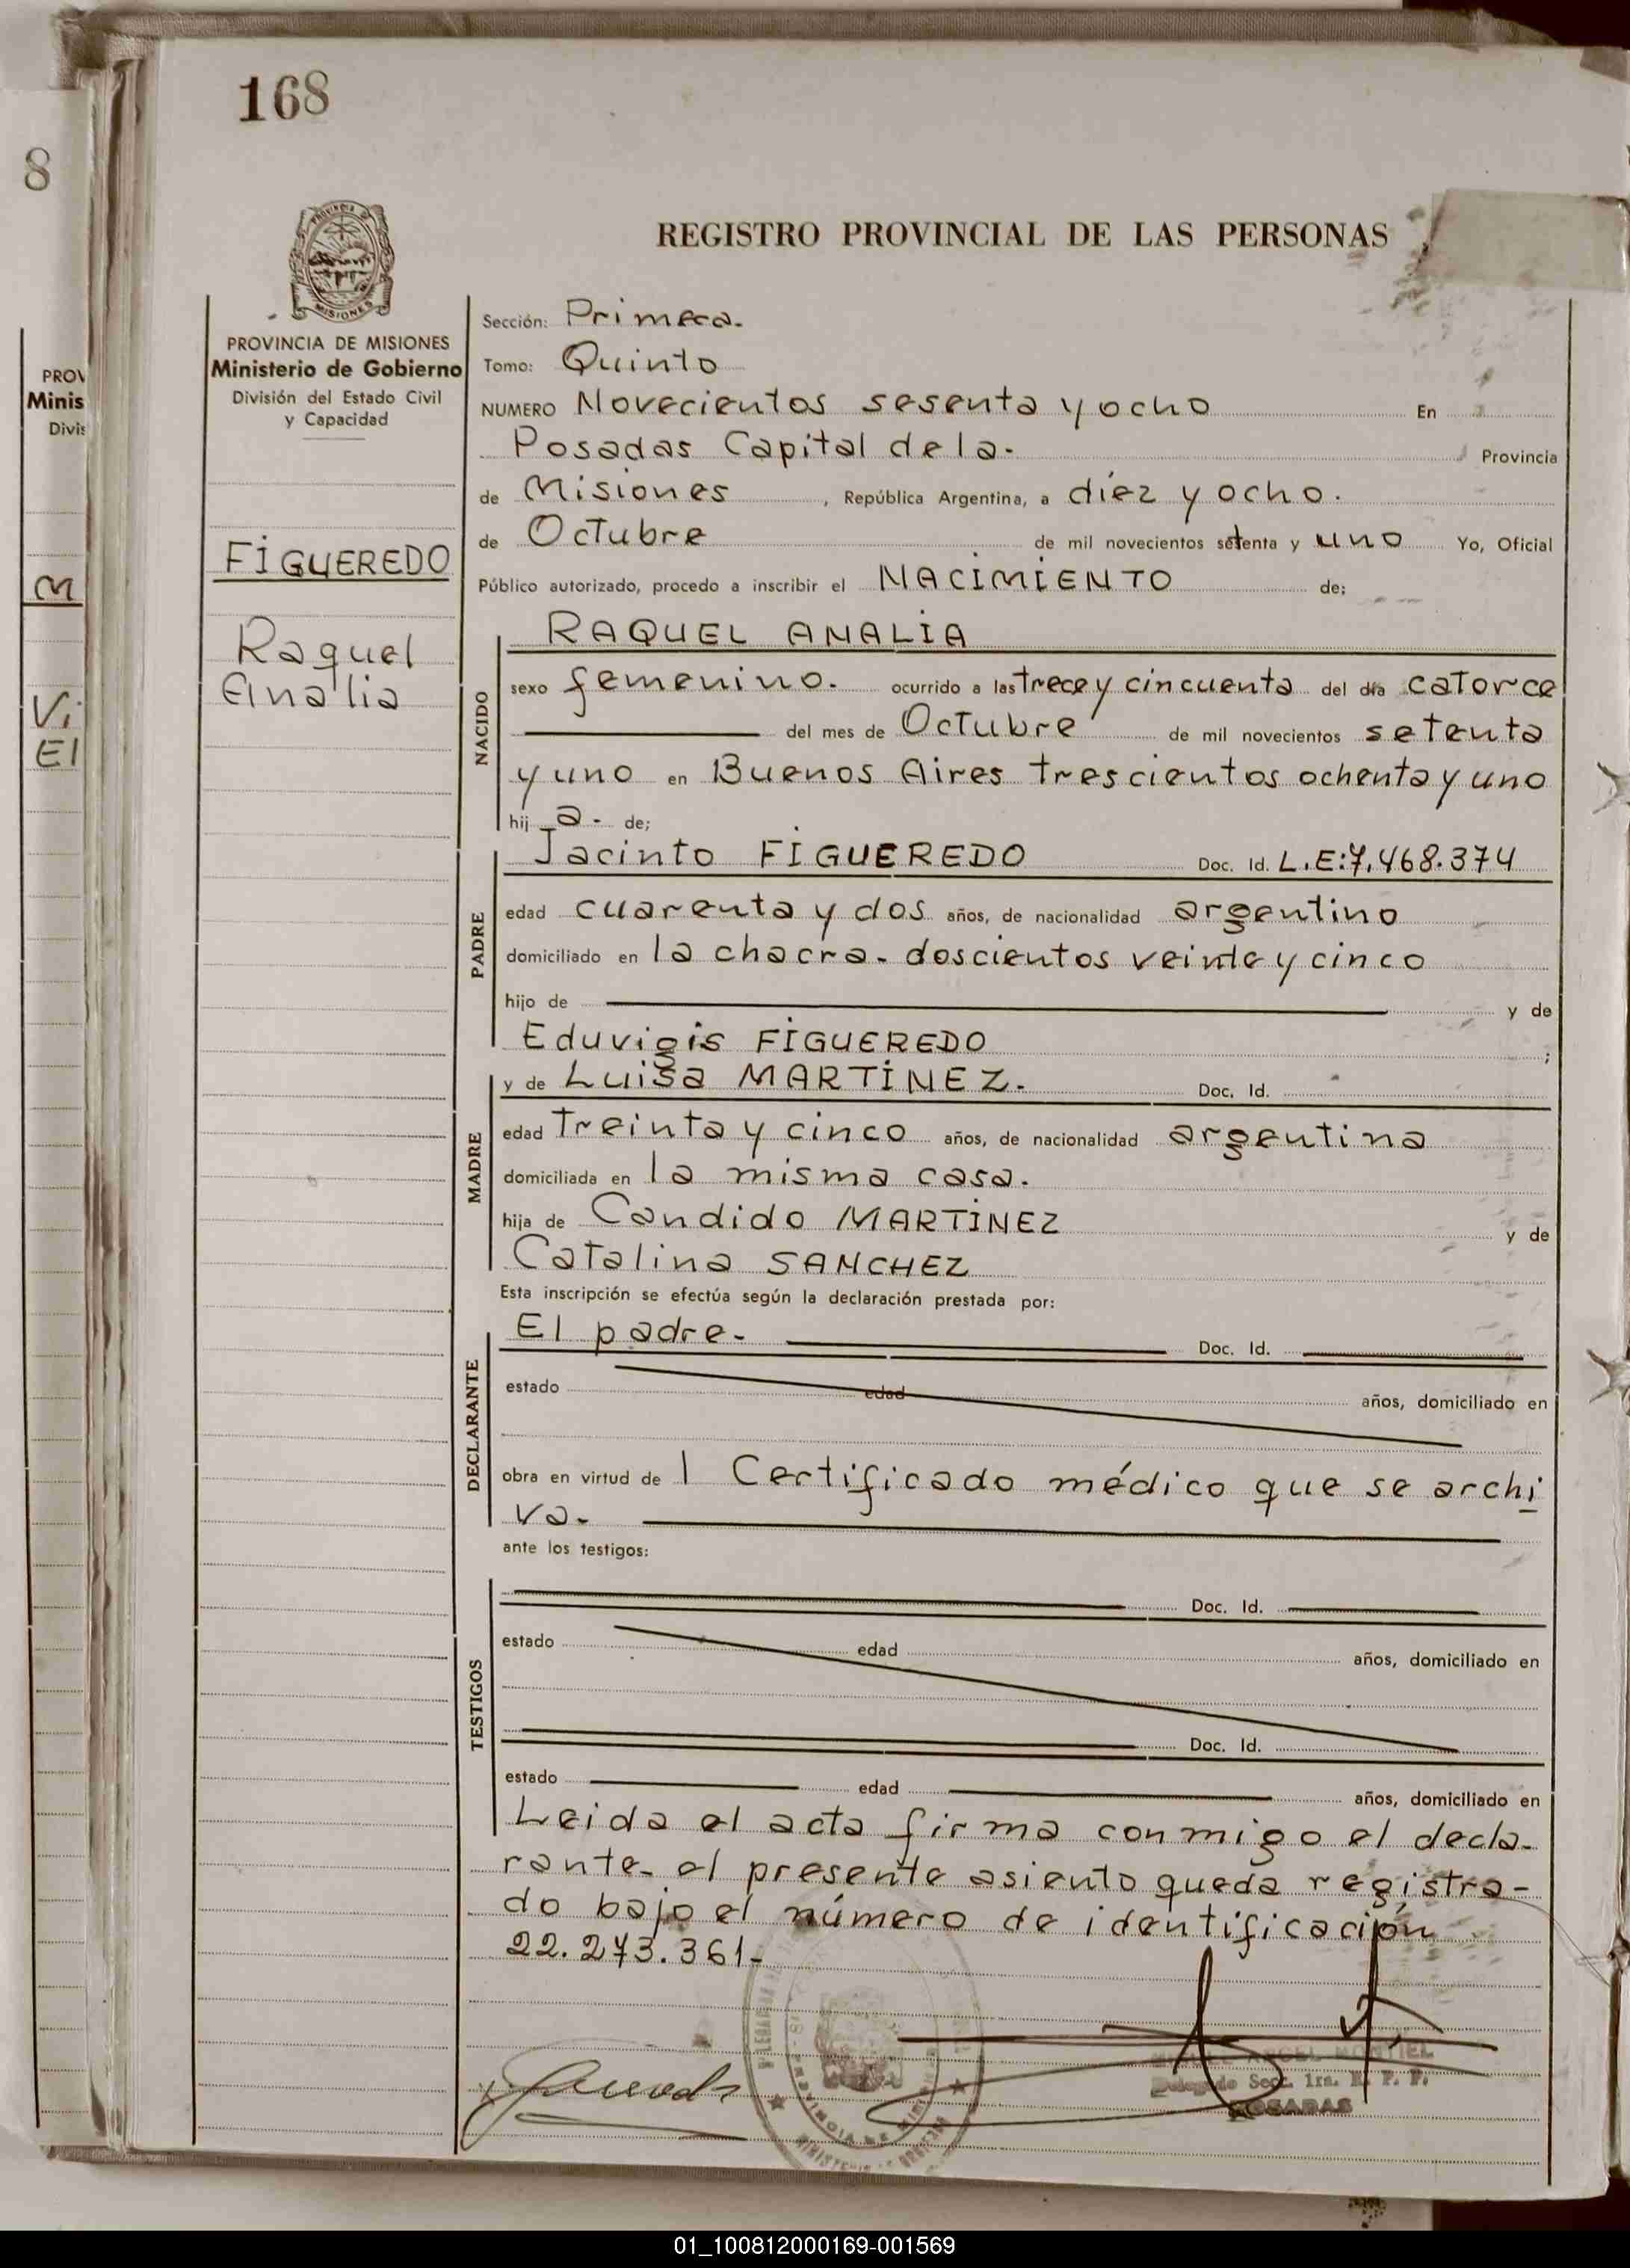 168
8
PROVINCIA DE MISIONES
REGISTRO PROVINCIAL DE LAS PERSONAS
PROVINCIA DE MISIONES
Ministerio de Gobierno
División del Estado Civil
y Capacidad
PROV
Minis
Divis
M
Vi
El
FIGUEREDO
Raquel
Analia
Sección: Primera.
Tomo: Quinto
NUMERO Novecientos sesenta y ocho En
Posadas Capital de la. Provincia
de Misiones, República Argentina, a diez y ocho.
de Octubre de mil novecientos setenta y uno Yo, Oficial
Público autorizado, procedo a inscribir el NACIMIENTO de;
NACIDO
RAQUEL ANALIA
sexo femenino. ocurrido a las trece y cincuenta del día catorce
del mes de Octubre de mil novecientos setenta
y uno en Buenos Aires trescientos ochenta y uno
hij a. de;
PADRE
Jacinto FIGUEREDO Doc. Id. L.E:7.468.374
edad cuarenta y dos años, de nacionalidad argentino
domiciliado en la chacra. doscientos veinte y cinco
hijo de y de
Eduvigis FIGUEREDO ;
MADRE
y de Luisa MARTINEZ. Doc. Id.
edad treinta y cinco años, de nacionalidad argentina
domiciliada en la misma casa.
hija de Candido MARTINEZ y de
Catalina SANCHEZ
Esta inscripción se efectúa según la declaración prestada por:
DECLARANTE
El padre. Doc. Id.
estado edad años, domiciliado en
obra en virtud de l Certificado médico que se archi
va.
ante los testigos:
TESTIGOS
Doc. Id.
estado edad años, domiciliado en
Doc. Id.
estado edad años, domiciliado en
Leida el acta firma conmigo el decla-
rante. el presente asiento queda registra-
do bajo el número de identificación
22.273.361-
MIGUEL ANGEL MONTIEL
Delegado Secc. 1ra. R. P. P.
POSADAS
01_100812000169-001569